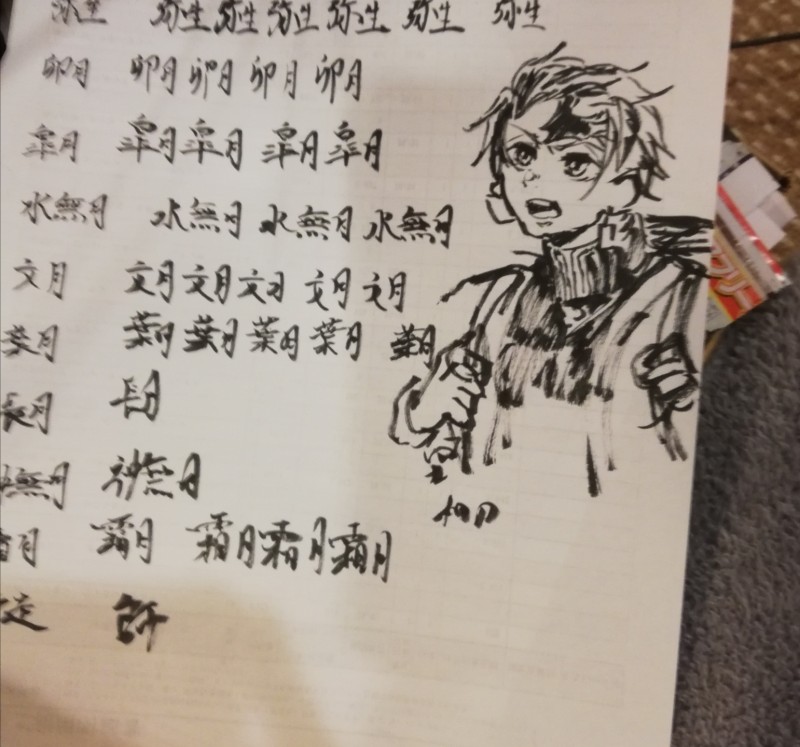 弥生 弥生 弥生 弥生 弥生 弥生 弥生
卯月 卯月 卯月 卯月 卯月
皐月 皐月 皐月 皐月 皐月
水無月 水無月 水無月 水無月
文月 文月 文月 文月 文月 文月
葉月 葉月 葉月 葉月 葉月 葉月
長月 長月
神無月 神無月
霜月 霜月 霜月 霜月 霜月
師走 師